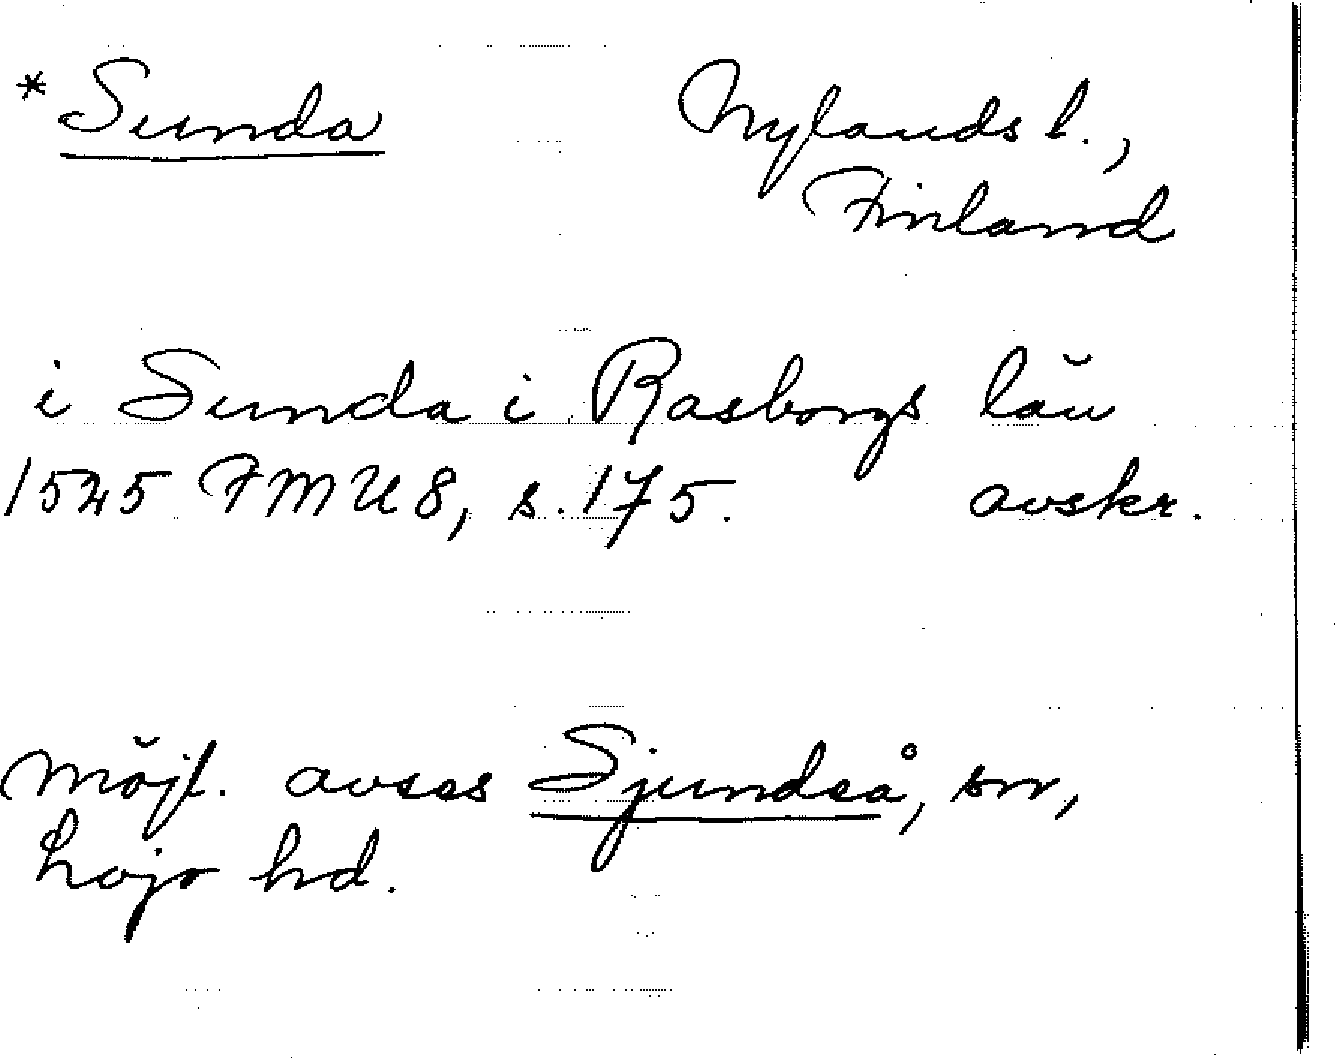 *Sunda Nylands l.,
Finland
i Sunda i Rasborgs län
1525 FMU 8, s. 175. avskr.
Möjl. avses Sjundeå, sn,
Lojo hd.